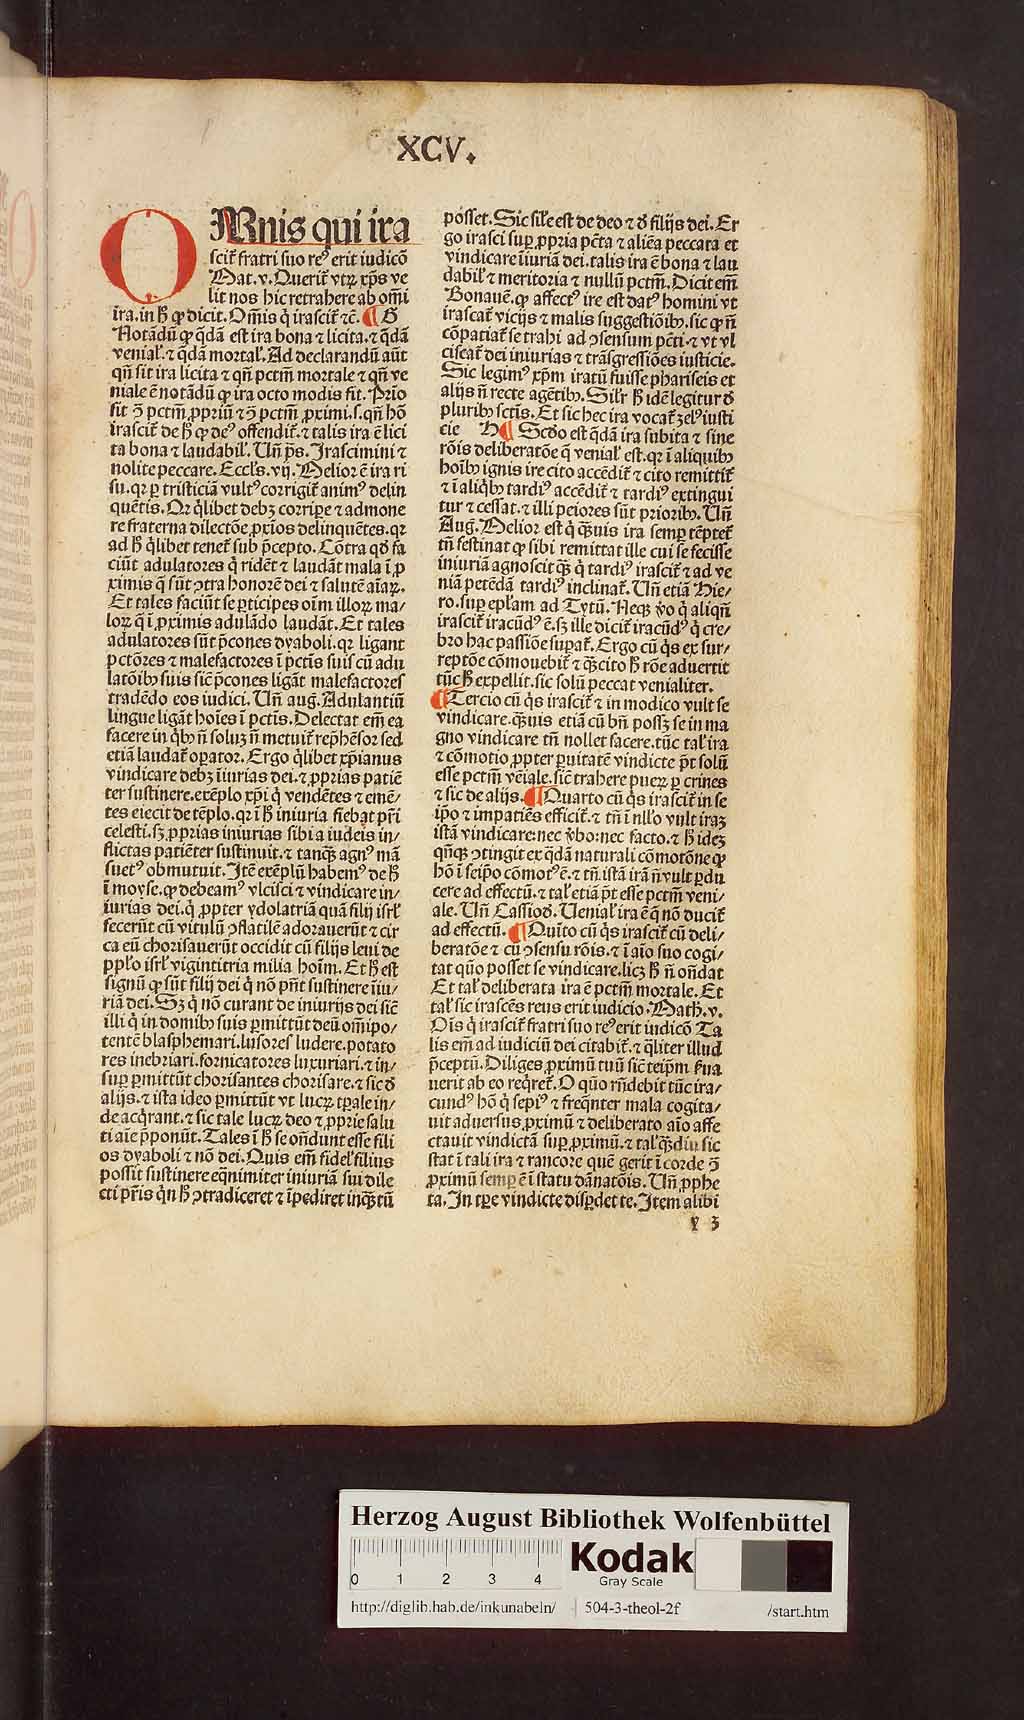 XCV.
OMnis qui ira
scit̃ fratri suo reꝰ erit iudicõ
Mat. v. Querit̃ vtꝝ xp̃s ve
lit nos hic retrahere ab om̃i
ira. in h̃ ꝙ dicit. Om̃is q̇ irascit̃ ⁊c̃. ¶ G
Notãdũ ꝙ q̃dã est ira bona ⁊ licita. ⁊ q̃dã
venial̃. ⁊ q̃dã mortal̃. Ad declarandũ aũt
qñ sit ira licita ⁊ qñ pctm̃ mortale ⁊ qñ ve
niale ẽ notãdũ ꝙ ira octo modis fit. Prĩo
fit ꝯ̃ pctm̃ ꝓpriũ ⁊ ꝯ̃ pctm̃ ꝓximi. s. qñ hõ
irascit̃ de h̃ ꝙ deꝰ offendit̃. ⁊ talis ira ẽ lici
ta bona ⁊ laudabil̃. Uñ p̃s. Irascimini ⁊
nolite peccare. Eccl̃s. vij. Melior ẽ ira ri
su. qꝛ ꝑ tristiciã vultꝰ corrigit̃ animꝰ delin
quẽtis. Qꝛ q̇libet debꝫ corriꝑe ⁊ admone
re fraterna dilectõe ꝓxĩos delinquẽtes. qꝛ
ad h̃ q̇libet tenet̃ sub p̃cepto. Cõtra qd̃ fa
ciũt adulatores q̇ ridẽt ⁊ laudãt mala ĩ ꝓ
ximis q̃ sũt ꝯtra honorẽ dei ⁊ salutẽ aĩaꝝ.
Et tales faciũt se ꝑticipes oĩm illoꝝ ma⸗
loꝝ q̃ ĩ ꝓximis adulãdo laudãt. Et tales
adulatores sũt p̃cones dyaboli. qꝛ ligant
pctõres ⁊ malefactores ĩ pctĩs suis cũ adu
latõibꝰ suis sic̃ p̃cones ligãt malefactores
tradẽdo eos iudici. Uñ aug̃. Adulantiũ
lingue ligãt hoĩes ĩ pctĩs. Delectat em̃ ea
facere in q̇bꝰ ñ soluꝫ ñ metuit̃ rep̃hẽsor sed
etiã laudat̃ oꝑator. Ergo q̇libet xp̃ianus
vindicare debꝫ ĩiurias dei. ⁊ ꝓprias patiẽ
ter sustinere. exẽplo xp̃i q̇ vendẽtes ⁊ emẽ⸗
tes eiecit de tẽplo. qꝛ ĩ h̃ iniuria fiebat pr̃i
celesti. sꝫ ꝓprias iniurias sibi a iudeis in⸗
flictas patiẽter sustinuit. ⁊ tanqꝫ agnꝰ mã
suetꝰ obmutuit. Itẽ exẽplũ habemꝰ de h̃
ĩ moyse. ꝙ debeamꝰ vlcisci ⁊ vindicare in⸗
iurias dei. q̇ ꝓpter ydolatriã quã filij isrl̃
fecerũt cũ vitulũ ꝯflatilẽ adorauerũt ⁊ cir
ca eũ chorisauerũt occidit cũ filijs leui de
ppl̃o isrl̃ vigintitria milia hoĩm. Et h̃ est
signũ ꝙ sũt filij dei q̇ nõ pñt sustinere ĩiu⸗
riã dei. Sꝫ q̇ nõ curant de iniurijs dei sic̃
illi q̇ in domibꝰ suis ꝑmittũt deũ om̃ipo⸗
tentẽ blasphemari. lusores ludere. potato
res inebriari. fornicatores luxuriari. ⁊ in⸗
suꝑ ꝑmittũt chorisantes chorisare. ⁊ sic d̃
alijs. ⁊ ista ideo ꝑmittũt vt lucꝝ tꝑale in⸗
de acq̇rant. ⁊ sic tale lucꝝ deo ⁊ ꝓprie salu
ti aĩe p̃ponũt. Tales ĩ h̃ se oñdunt esse fili
os dyaboli ⁊ nõ dei. Quis em̃ fidel̃ filius
possit sustinere eq̃nimiter iniuriã sui dile
cti pr̃is q̇n h̃ ꝯtradiceret ⁊ ĩpediret inq̃tũ
posset. Sic sil̃e est de deo ⁊ d̃ filijs dei. Er
go irasci suꝑ ꝓpria pc̃ta ⁊ aliẽa peccata et
vindicare ĩiuriã dei. talis ira ẽ bona ⁊ lau
dabil̃ ⁊ meritoria ⁊ nullũ pctm̃. Dicit em̃
Bonauẽ. ꝙ affectꝰ ire est datꝰ homini vt
irascat̃ vicijs ⁊ malis suggestiõibꝰ. sic ꝙ ñ
cõpatiat̃ se trahi ad ꝯsensum pc̃ti. ⁊ vt vl
ciscat̃ dei iniurias ⁊ trãsgressiões iusticie.
Sic legimꝰ xp̃m iratũ fuisse phariseis et
alijs ñ recte agẽtibꝰ. Sil̃r h̃ idẽ legitur d̃
pluribꝰ sctĩs. Et sic hec ira vocat̃ zelꝰ iusti
cie H ¶ Scd̃o est q̃dã ira subita ⁊ sine
rõis deliberatõe q̃ venial̃ est. qꝛ ĩ aliquibꝰ
hoĩbꝰ ignis ire cito accẽdit̃ ⁊ cito remittit̃
⁊ ĩ aliq̇bꝰ tardiꝰ accẽdit̃ ⁊ tardiꝰ extingui
tur ⁊ cessat. ⁊ illi peiores sũt prioribꝰ. Uñ
Aug. Melior est q̇ q̃uis ira semꝑ tẽptet̃
tñ festinat ꝙ sibi remittat ille cui se fecisse
iniuriã agnoscit qꝫ q̇ tardiꝰ irascit̃ ⁊ ad ve
niã petẽdã tardiꝰ inclinat̃. Uñ etiã Hie⸗
ro. suꝑ epl̃am ad Tytũ. Neqꝫ ṽo q̇ aliqñ
irascit̃ iracũdꝰ ẽ. sꝫ ille dicit̃ iracũdꝰ q̇ cre⸗
bro hac passiõe suꝑat̃. Ergo cũ q̇s ex sur⸗
reptõe cõmouebit̃ ⁊ q̃cito h̃ rõe aduertit
tũc h̃ expellit. sic solũ peccat venialiter.
¶ Tercio cũ q̇s irascit̃ ⁊ in modico vult se
vindicare. q̃uis etiã cũ bñ possꝫ se in ma
gno vindicare tñ nollet facere. tũc tal̃ ira
⁊ cõmotio ꝓpter ꝑuitatẽ vindicte p̃t solũ
esse pctm̃ vẽiale. sic̃ trahere pueꝝ ꝑ crines
⁊ sic de alijs. ¶ Quarto cũ q̇s irascit̃ in se
ip̃o ⁊ impatiẽs efficit̃. ⁊ tñ ĩ nll̃o vult iraꝫ
istã vindicare: nec ṽbo: nec facto. ⁊ h̃ ideꝫ
qñqꝫ ꝯtingit ex q̃dã naturali cõmotõne ꝙ
hõ ĩ seip̃o cõmotꝰ ẽ. ⁊ tñ istã irã ñ vult ꝑdu
cere ad effectũ. ⁊ tal̃ etiã p̃t esse pctm̃ veni⸗
ale. Uñ Cassiod̃. Uenial̃ ira ẽ q̃ nõ ducit̃
ad effectũ. ¶ Quĩto cũ q̇s irascit̃ cũ deli⸗
beratõe ⁊ cũ ꝯsensu rõis. ⁊ ĩ aĩo suo cogi⸗
tat quõ posset se vindicare. licꝫ h̃ ñ oñdat
Et tal̃ deliberata ira ẽ pctm̃ mortale. Et
tal̃ sic irascẽs reus erit iudicio. Math. v.
Oĩs q̇ irascit̃ fratri suo reꝰ erit iudicõ Ta
lis em̃ ad iudiciũ dei citabit̃. ⁊ q̃liter illud
p̃ceptũ. Diliges ꝓximũ tuũ sic̃ teip̃m ẜua
uerit ab eo req̇ret̃. O quõ rñdebit tũc ira⸗
cundꝰ hõ q̇ sepiꝰ ⁊ freq̃nter mala cogita⸗
uit aduersus ꝓximũ ⁊ deliberato aĩo affe
ctauit vindictã suꝑ ꝓximũ. ⁊ tal̃ q̃diu sic
stat ĩ tali ira ⁊ rancore quẽ gerit ĩ corde ꝯ̃
ꝓximũ semꝑ ẽ ĩ statu dãnatõis. Uñ ꝓphe
ta. In tꝑe vindicte disꝑdet te. Item alibi
y 3
Herzog August Bibliothek Wolfenbüttel
0 1 2 3 4
Kodak
Gray Scale
http://diglib.hab.de/inkunabeln/ 504-3-theol-2f /start.htm